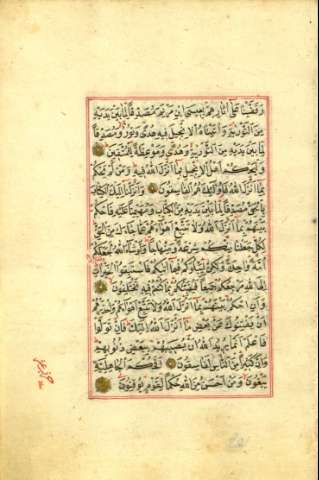 وَقَفَّيْنَا عَلَى آثَارِهِمْ بِعِيسَى ابْنِ مَرْيَمَ مُصَدِّقًا لِمَا بَيْنَ يَدَيْهِ
مِنَ التَّوْرٰيةِ وَآتَيْنَاهُ الْاِنْجِيلَ فِيهِ هُدًى وَنُورٌ وَمُصَدِّقًا
لِمَا بَيْنَ يَدَيْهِ مِنَ التَّوْرٰيةِ وَهُدًى وَمَوْعِظَةً لِلْمُتَّقِينَ
وَلْيَحْكُمْ اَهْلُ الْاِنْجِيلِ بِمَا اَنْزَلَ اللهُ فِيهِ وَمَنْ لَمْ يَحْكُمْ
بِمَا اَنْزَلَ اللهُ فَاُولٰئِكَ هُمُ الْفَاسِقُونَ وَاَنْزَلْنَا اِلَيْكَ الْكِتَابَ
بِالْحَقِّ مُصَدِّقًا لِمَا بَيْنَ يَدَيْهِ مِنَ الْكِتَابِ وَمُهَيْمِنًا عَلَيْهِ فَاحْكُمْ
بَيْنَهُمْ بِمَا اَنْزَلَ اللهُ وَلَا تَتَّبِعْ اَهْوَاءَهُمْ عَمَّا جَاءَكَ مِنَ الْحَقِّ
لِكُلٍّ جَعَلْنَا مِنْكُمْ شِرْعَةً وَمِنْهَاجًا وَلَوْ شَاءَ اللهُ لَجَعَلَكُمْ
اُمَّةً وَاحِدَةً وَلٰكِنْ لِيَبْلُوَكُمْ فِيمَا آتٰيكُمْ فَاسْتَبِقُوا الْخَيْرَاتِ
اِلَى اللهِ مَرْجِعُكُمْ جَمِيعًا فَيُنَبِّئُكُمْ بِمَا كُنْتُمْ فِيهِ تَخْتَلِفُونَ
وَاَنِ احْكُمْ بَيْنَهُمْ بِمَا اَنْزَلَ اللهُ وَلَا تَتَّبِعْ اَهْوَاءَهُمْ وَاحْذَرْهُمْ
اَنْ يَفْتِنُوكَ عَنْ بَعْضِ مَا اَنْزَلَ اللهُ اِلَيْكَ فَاِنْ تَوَلَّوْا
فَاعْلَمْ اَنَّمَا يُرِيدُ اللهُ اَنْ يُصِيبَهُمْ بِبَعْضِ ذُنُوبِهِمْ
وَاِنَّ كَثِيرًا مِنَ النَّاسِ لَفَاسِقُونَ اَفَحُكْمَ الْجَاهِلِيَّةِ
يَبْغُونَ وَمَنْ اَحْسَنُ مِنَ اللهِ حُكْمًا لِقَوْمٍ يُوقِنُونَ